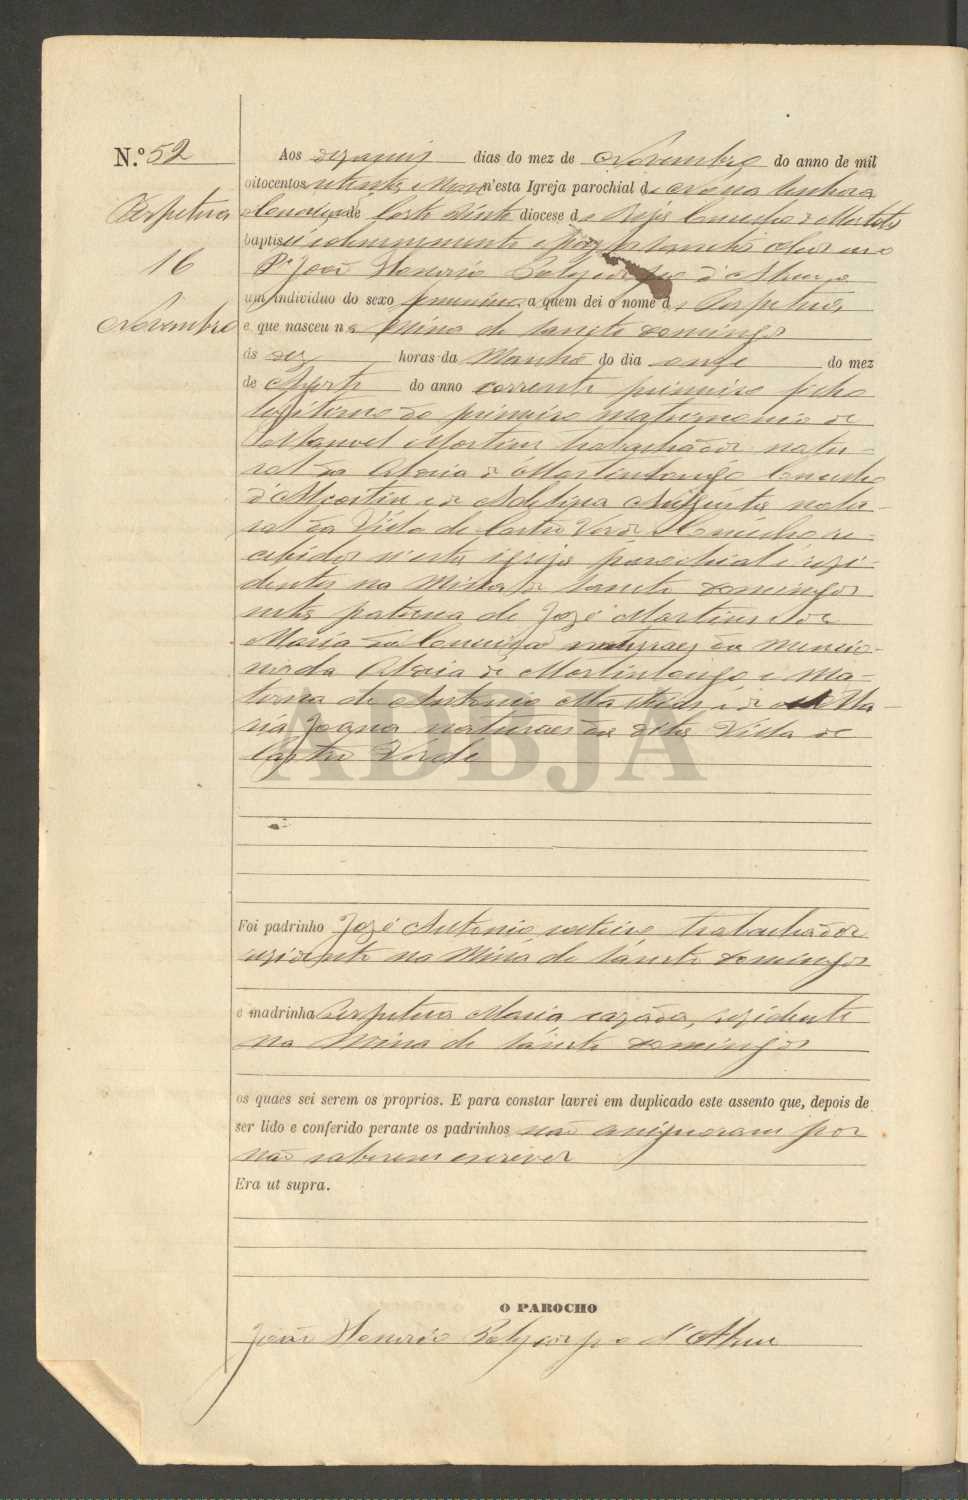 N.º 52
Perpetua
16
Novembro
Aos dezaseis dias do mez de Novembro do anno de mil
oitocentos setenta e nove n'esta Igreja parochial de Nossa Senhora
da Conceição de Corte Pinto diocese de Beja Concelho de Mertola
baptisei solemnemente e
P.e João Honorio d'Abreu
um individuo do sexo femenino a quem dei o nome de Perpetua,
e que nasceu na Mina de Sancto Domingos
ás dez horas da Manhã do dia onze do mez
de Agosto do anno corrente primeiro filho
legitimo do primeiro matrimonio de
Manoel Martins trabalhador natu-
ral da Aldeia de Martinlongo Concelho
d'Alcoutim e de Adelina Augusta natu-
ral da Villa de Castro Verde Concelho re-
cebidos n'esta igreja parochial e rezi-
dentes na Mina de Sancto Domingos
neta paterna de Jozé Martins e de
Maria da Conceição naturaes da mencio-
nada Aldeia de Martinlongo e ma-
terna de Antonio Mathias e de Ma-
ria Joana naturaes da dita Villa de
Castro Verde
ADBJA
Foi padrinho Jozé Antonio solteiro trabalhador
rezidente na Mina de Sancto Domingos
e madrinha Perpetua Maria cazada, rezidente
na Mina de Sancto Domingos
os quaes sei serem os proprios. E para constar lavrei em duplicado este assento que, depois de
ser lido e conferido perante os padrinhos não assignaram por
não saberem escrever
Era ut supra.
O PAROCHO
João Honorio Polycarpo d'Abreu